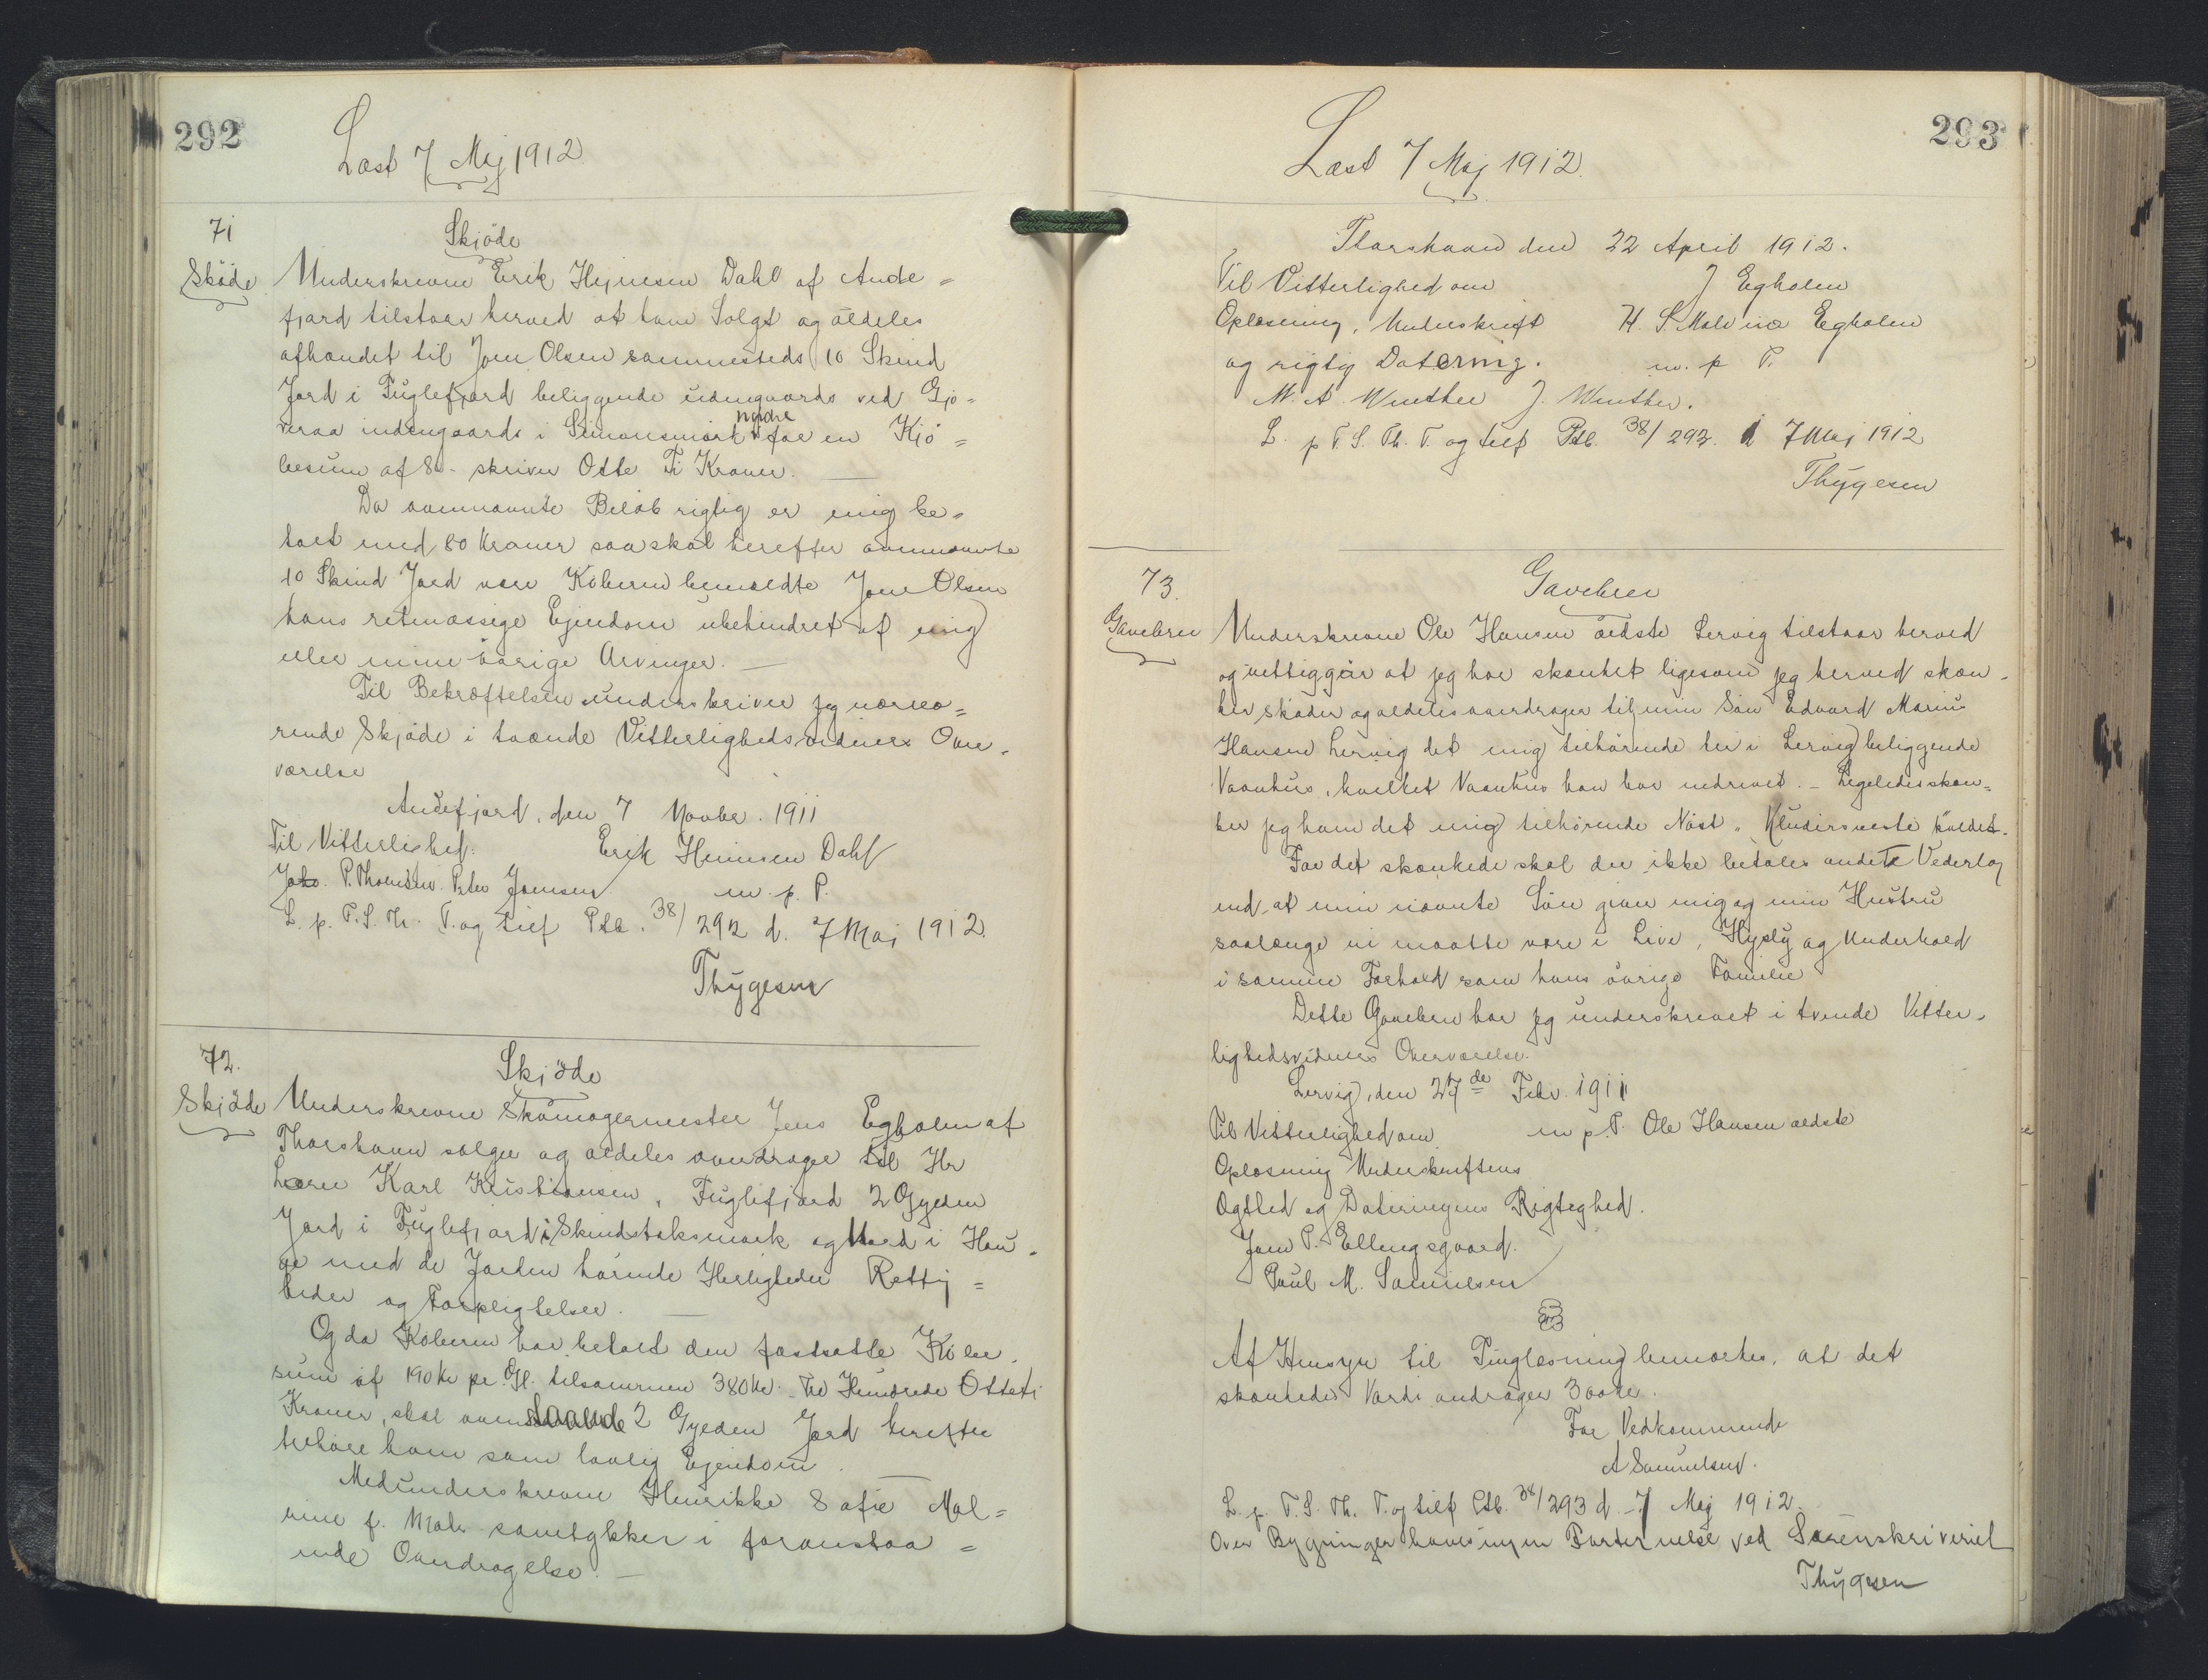 292
Læst 7 Maj 1912
71
Skjøde
Skøde
Underskrevne Erik Hejnesen Dahl af Ande=
fjord tilstaar herved at have Solgt og aldeles
afhændet til Joen Olsen sammesteds 10 Skind
Jord i Fuglefjord beliggende udengaards ved Gjö=
veraa indengaards i Simonsmørk nydre for en Kjö=
besum af 80- skriver Otte Ti Kroner.
Da ovennævnte Beløb rigtig er mig be=
talt med 80 Kroner saa skal herefter ovennævnte
10 Skind Jord være Köberen bemeldte Joen Olsen
hans retmæssige Ejendom ubehindret af mig
eller mine øvrige Arvinger.
Til Bekræftelsen underskriver jeg nærvæ=
rende Skjøde i tvænde Vitterlighedsvidners Over=
værelse
Andefjord, den 7 Novbr. 1911
Til Vitterlighed. Erik Heinesen Dahl
Joho. P. Thomsen. Peter Joensen m. p. P.
L. p. T. S. Th. T. og tilf Ptb. 38/292 d. 7 Maj 1912.
Thygesen
72.
Skjøde
Skjøde
Underskrevne Skomagermester Jens Egholm af
Thorshavn sælger og aldeles overdrager til Hr
Lærer Karl Kristiansen, Fuglefjord 2 Gyeden
Jord i Fuglefjord i Skindstaksmark og Mærd i Hau=
ge med de Jorden hørende Herligheder Rettig=
heder og Forpligtelser.
Og da Køberen har betalt den fastsatte Købe
sum af 190 Kr pr. Gl. tilsammen 380 Kr. Tre Hundrede Otteti
Kroner, skal ovenstaaende 2 Gyeden Jord herefter
tilhøre ham som lovlig Ejendom.
Medunderskrevne Henrikke Sofie Mal=
vine f. Mohr samtykker i foranstaa=
ende Overdragelse.
293
Læst 7 Maj 1912.
Thorshavn den 22 April 1912.
Til Vitterlighed om J Egholm
Oplæsning, Underskrift H. S. Malvina Egholm
og rigtig Datering. m. p P.
M. A. Winther J. Winther.
L. p T. S. Th. T. og tilf Ptb. 38/293. d 7 Maj 1912
Thygesen
73.
Gavebrev
Gavebrev
Underskrevne Ole Hansen ældste Lervig tilstaar herved
og vitterliggør at jeg har skænket ligesom jeg herved skæn=
ker skøder og aldeles overdrager til min Søn Edvard Marius
Hansen Lervig det mig tilhørende her i Lervig beliggende
Vaanhus, hvilket Vaanhus han har nedrevet. - Ligeledes skæn=
ker jeg ham det mig tilhørende Nøst, Kludersneste kaldet.
For det skænkede skal der ikke betales andet Vederlag
end at min nævnte Søn giver mig og min Hustru
saalænge vi maatte være i Live, Husly og Underhold
i samme Forhold som hans øvrige Familie
Dette Gavebrev har jeg underskrevet i tvende Vitter=
lighedsvidners Overværelse.
Lervig, den 27de Febr 1911
Til Vitterlighed om m p. P. Ole Hansen ældste
Oplæsning Underskriftens
Ægthed og Dateringens Rigtighed.
Joen P. Ellingsgaard.
Poul M. Samuelsen
Af Hensyn til Tinglæsning bemærkes, at det
skænkedes Værdi andrager 300 Kr.
For Vedkommende
A Samuelsen.
L. p. T. S. Th. T. og tilf Ptb. 38/293 d. 7 Maj 1912.
Over Bygninger haves ingen Fortegnelse ved Sorenskriveriet
Thygesen